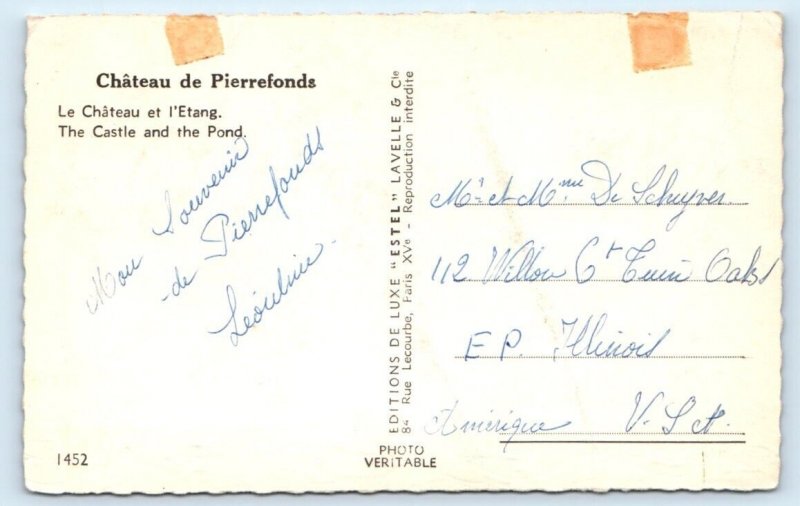 Château de Pierrefonds
Le Château et l'Etang.
The Castle and the Pond.
Mon Souvenir
de Pierrefonds
Léontine
EDITIONS DE LUXE "ESTEL" LAVELLE & Cie
84 Rue Lecourbe, Paris XVe - Reproduction interdite
Mr et Mme De Schuyver
112 Willow Ct Twin Oaks
E P. Illinois
Amérique U.S.A.
1452
PHOTO
VERITABLE